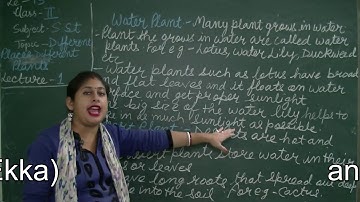 Le - 13
Class - II
Subject: S St
Topic - Different
Places different
Plants
Lecture - 1
Water Plant - Many plant grows in water
- Plant the grows in water are called water
plants. For eg - Lotus, water Lily, Duckweed
etc
Water plants such as lotus have broad
flat leaves and it floats on water
surface and get proper sunlight
big size of the water lily helps to
in as much sunlight as possible.
are hot and
plants store water in their
or leaves
have long roots that spread deep
into the soil. For eg - Cactus.
Ekka) an